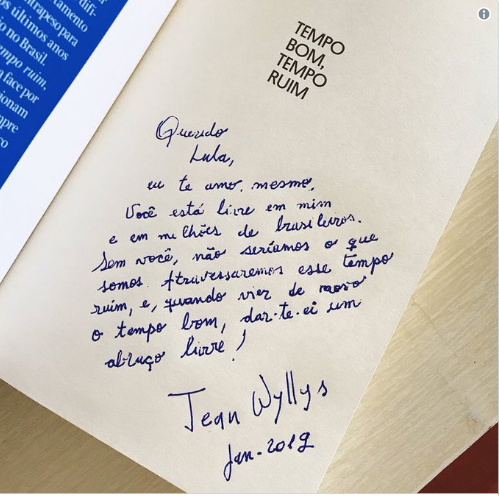 tamento
trapeso para
os últimos anos
o no Brasil.
mpo ruim,
a face por
cionam
mpre
co
TEMPO
BOM,
TEMPO
RUIM
Querido
Lula,
eu te amo, mesmo.
Você está livre em mim
e em milhões de brasileiros.
Sem você, não seríamos o que
somos. Atravessaremos esse tempo
ruim, e, quando vier de novo
o tempo bom, dar-te-ei um
abraço livre!
Jean Wyllys
Jan-2019